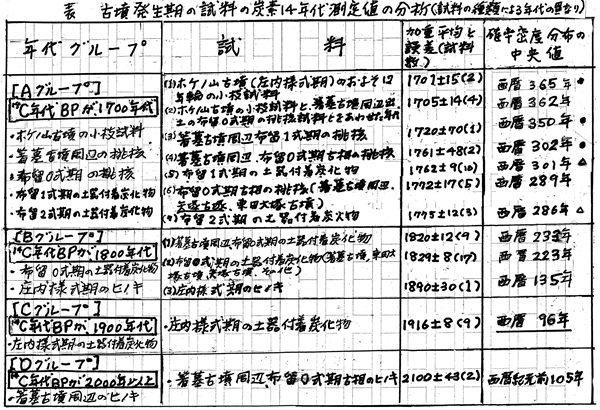 表 古墳発生期の試料の炭素14年代測定値の分析(試料の種類による年代の異なり)
年代グループ
試料
加重平均と誤差(試料数)
確率密度分布の中央値
[Aグループ]
¹⁴C年代BPが1700年代
・ホケノ山古墳の小枝試料
・箸墓古墳周辺の桃核
・布留0式期の桃核
・布留1式期の土器付着炭化物
・布留2式期の土器付着炭化物
(1)ホケノ山古墳(庄内様式期)のおよそ12年輪の小枝試料
1701±15(2)
西暦365年
(2)ホケノ山古墳の小枝試料と、箸墓古墳周辺出土の布留0式期の桃核試料とをあわせた年代
1705±14(4)
西暦362年
(3)箸墓古墳周辺布留1式期の桃核
1720±70(1)
西暦350年
(4)箸墓古墳周辺、布留0式期古相の桃核
1761±48(2)
西暦302年
(5)布留1式期の土器付着炭化物
1762±9(10)
西暦301年
(6)布留0式期古相の桃核(箸墓古墳周辺、矢塚古墳、東田大塚古墳)
1772±17(5)
西暦289年
(7)布留2式期の土器付着炭火物
1775±12(3)
西暦286年
[Bグループ]
¹⁴C年代BPが1800年代
・布留0式期の土器付着炭化物
・庄内様式期のヒノキ
(1)箸墓古墳周辺布留0式期の土器付着炭化物
1820±12(9)
(2)布留0式期の土器付着炭化物(箸墓古墳、東田大塚古墳、矢塚古墳、その他)
1829±8(17)
西暦223年
(3)庄内様式期のヒノキ
1890±30(1)
西暦135年
[Cグループ]
¹⁴C年代BPが1900年代
・庄内様式期の土器付着炭化物
・庄内様式期の土器付着炭化物
1916±8(9)
西暦96年
[Dグループ]
¹⁴C年代BPが2000年以上
・箸墓古墳周辺のヒノキ
・箸墓古墳周辺布留0式期古相のヒノキ
2100±43(2)
西暦紀元前105年